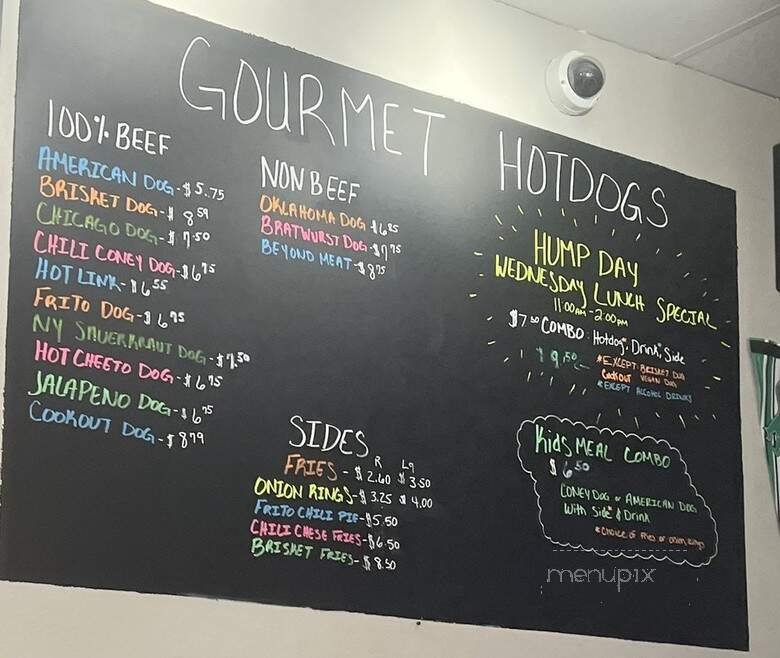 GOURMET HOTDOGS
100% BEEF
AMERICAN DOG - $5.75
BRISKET DOG - $ 8.59
CHICAGO DOG - $ 7.50
CHILI CONEY DOG - $6.75
HOT LINK - $6.55
FRITO DOG - $ 6.75
NY SAUERKRAUT DOG - $7.50
HOT CHEETO DOG - $6.75
JALAPENO DOG - $ 6.75
COOKOUT DOG - $ 8.79
NON BEEF
OKLAHOMA DOG $6.25
BRATWURST DOG - $7.75
BEYOND MEAT - $8.75
SIDES
R Lg
FRIES - $ 2.60 $ 3.50
ONION RINGS - $ 3.25 $ 4.00
FRITO CHILI PIE - $5.50
CHILI CHESE FRIES - $6.50
BRISKET FRIES - $ 8.50
HUMP DAY
WEDNESDAY LUNCH SPECIAL
11:00AM - 2:00PM
$7.50 COMBO: Hotdog*, Drink*, Side
$ 9.50 - *EXCEPT: BRISKET DOG
COOKOUT VEGAN DOG
*EXCEPT ALCOHOL DRINKS
Kids MEAL COMBO
$ 6.50
CONEY DOG or AMERICAN DOG
With Side* & Drink
*Choice of Fries or onion rings
menupix